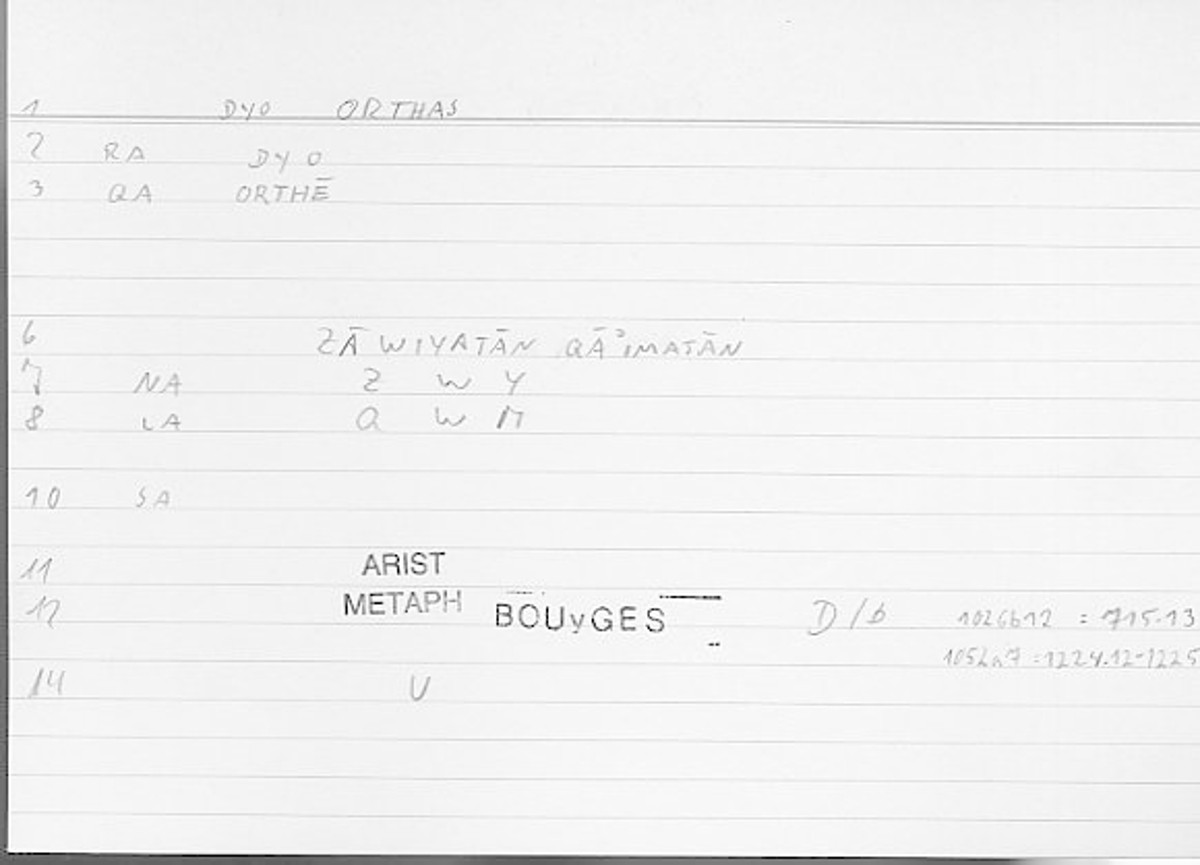 1 DYO ORTHAS
2 RA DYO
3 QA ORTHĒ
6 ZĀWIYATĀN QĀʾIMATĀN
7 NA Z W Y
8 LA Q W M
10 SA
11 ARIST
12 METAPH BOUyGES D/b 1026b12 = 715.13
1052a7 = 1224.12-1225
14 U